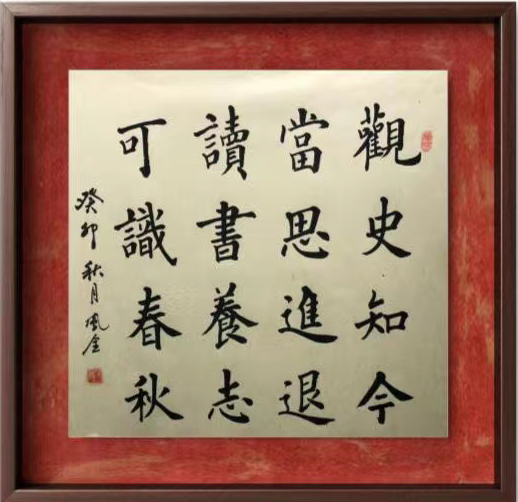 觀史知今
當思進退
讀書養志
可識春秋
癸卯秋月風金